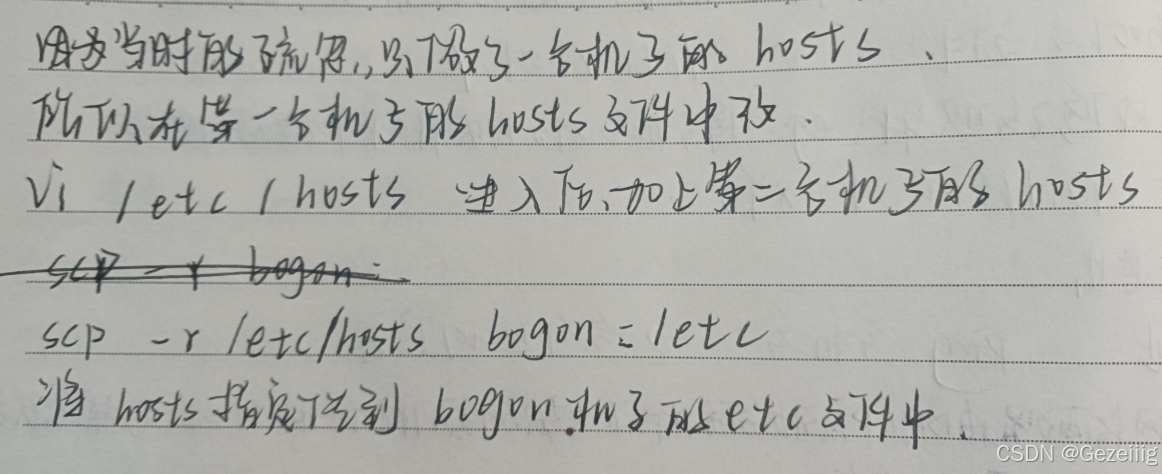 因为当时的疏忽,,只做了一台机子的 hosts 、
所以在第一台机子的 hosts 文件中改 .
Vi /etc/hosts 进入后、加上第二台机子的 hosts
scp -r bogon:
scp -r /etc/hosts bogon:/etc
将 hosts 指定传到 bogon 机子的 etc 文件中.
CSDN @Gezeiiig